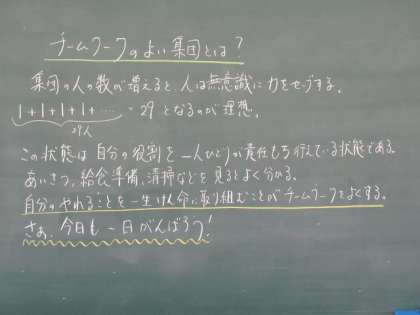 チームワークのよい集団とは?
集団の人の数が増えると、人は無意識に力をセーブする。
1+1+1+1+…=29となるのが理想。
29人
この状態は自分の役割を一人ひとりが責任もち行えている状態である。
あいさつ、給食準備、清掃などを見るとよく分かる。
自分のやれることを一生けん命に取り組むことがチームワークをよくする。
さぁ、今日も一日がんばろう!